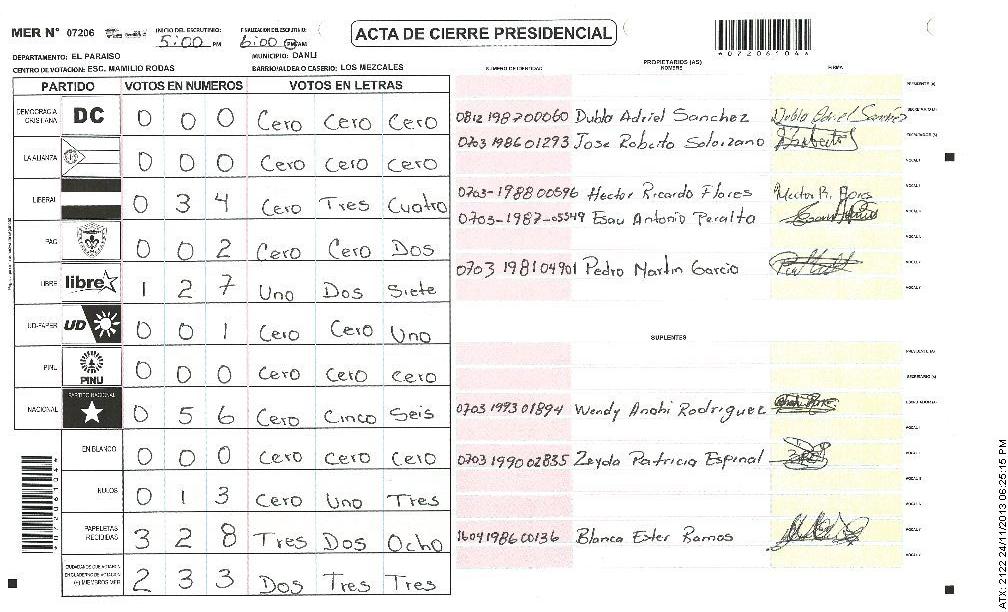 MER N° 07206 INICIO DEL ESCRUTINIO: 5:00 PM FINALIZACION DEL ESCRUTINIO: 6:00 PM AM ACTA DE CIERRE PRESIDENCIAL
*07206104*
DEPARTAMENTO: EL PARAISO MUNICIPIO: DANLI
CENTRO DE VOTACION: ESC. MAMILIO RODAS BARRIO/ALDEA O CASERIO: LOS MEZCALES
PROPIETARIOS (AS)
NUMERO DE IDENTIDAD NOMBRE FIRMA
PARTIDO VOTOS EN NUMEROS VOTOS EN LETRAS
DEMOCRACIA CRISTIANA DC 0 0 0 Cero Cero Cero
LA ALIANZA 0 0 0 Cero Cero Cero
LIBERAL 0 3 4 Cero Tres Cuatro
PAC 0 0 2 Cero Cero Dos
LIBRE libre 1 2 7 Uno Dos Siete
UD-FAPER UD 0 0 1 Cero Cero Uno
PINU PINU 0 0 0 Cero Cero Cero
NACIONAL PARTIDO NACIONAL 0 5 6 Cero Cinco Seis
EN BLANCO 0 0 0 Cero Cero Cero
NULOS 0 1 3 Cero Uno Tres
PAPELETAS RECIBIDAS 3 2 8 Tres Dos Ocho
CIUDADANOS QUE VOTARON EN CUADERNO DE VOTACION (+) MIEMBROS MER 2 3 3 Dos Tres Tres
PRESIDENTE (A)
0812 198700060 Dubla Adriel Sanchez Dubla Adriel Sanchez SECRETARIO (A)
0703 198601293 Jose Roberto Solorzano ESCRUTADOR (A)
VOCAL I
0703-1988 00596 Hector Ricardo Flores Hector R. Flores
0703-1987-05549 Esau Antonio Peralta
0703 198104901 Pedro Martin Garcia
SUPLENTES
PRESIDENTE (A)
SECRETARIO (A)
0703 1993 01894 Wendy Anahi Rodriguez ESCRUTADOR (A)
0703 1990 02835 Zeyda Patricia Espinal
1604 1986 00136 Blanca Ester Ramos
ATX: 2122 24/11/2013 06:25:15 PM